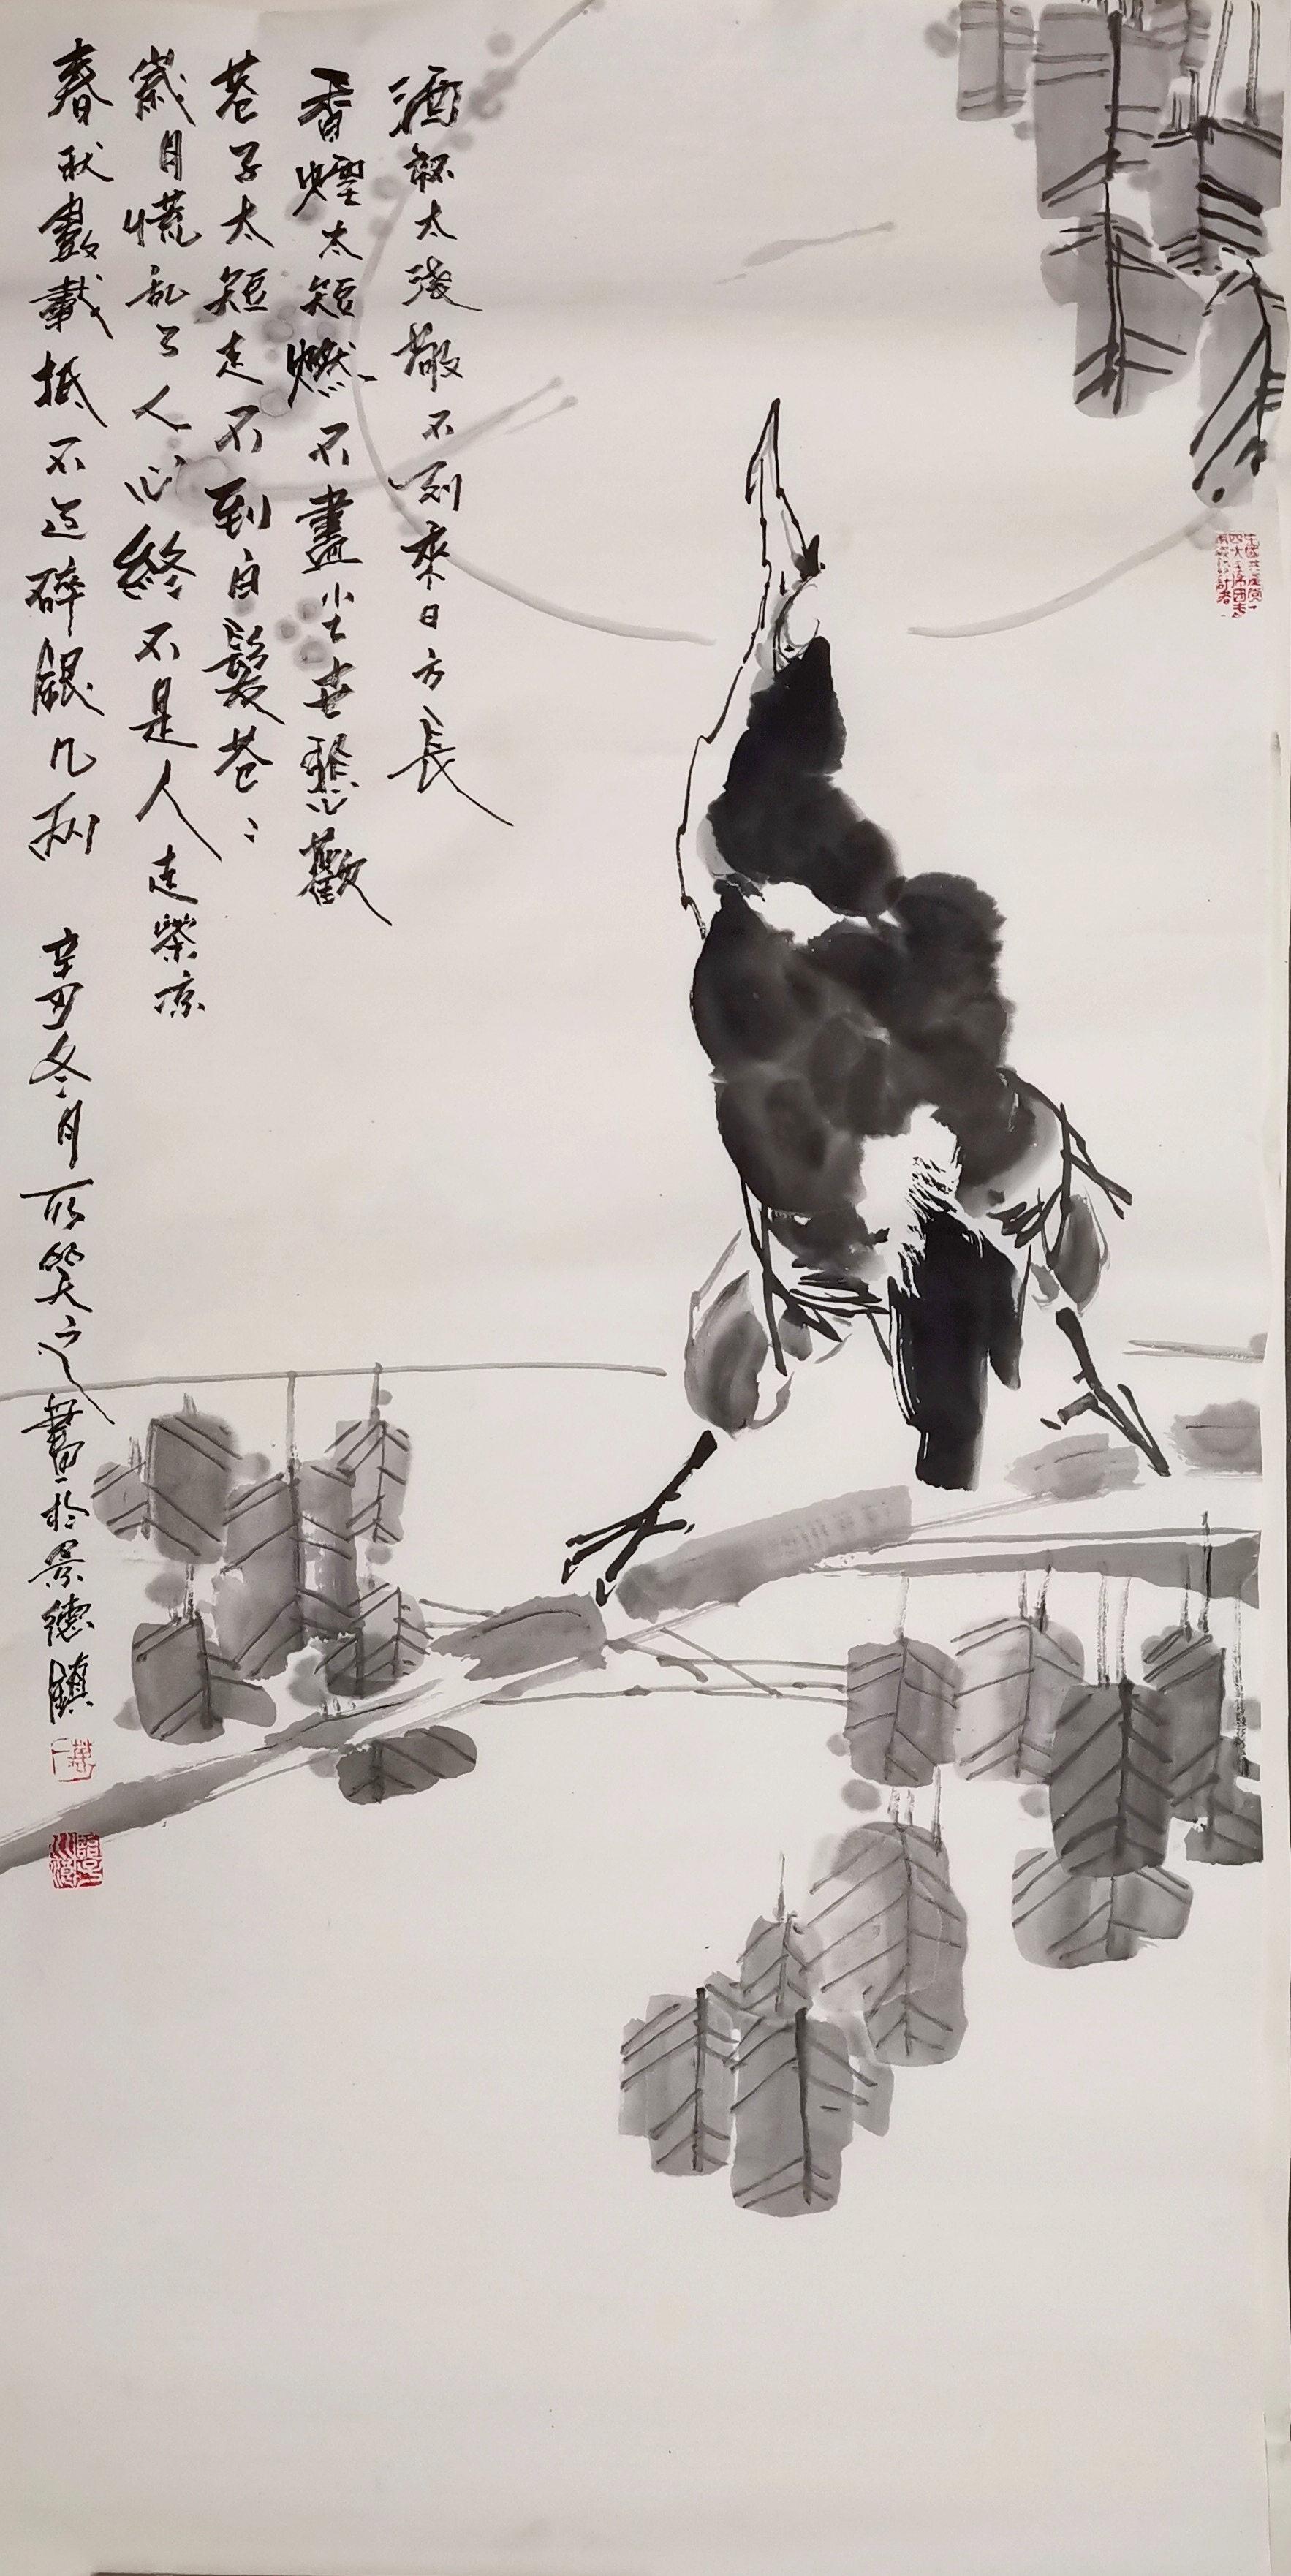 酒杯太淺敬不到來日方長
香煙太短燃不盡尘世悲歡
巷子太短走不到白髮巷〻
歲月慌乱了人心終不是人走茶凉
春秋數載抵不过碎銀几两
辛丑冬月可笑之畫於景德鎮